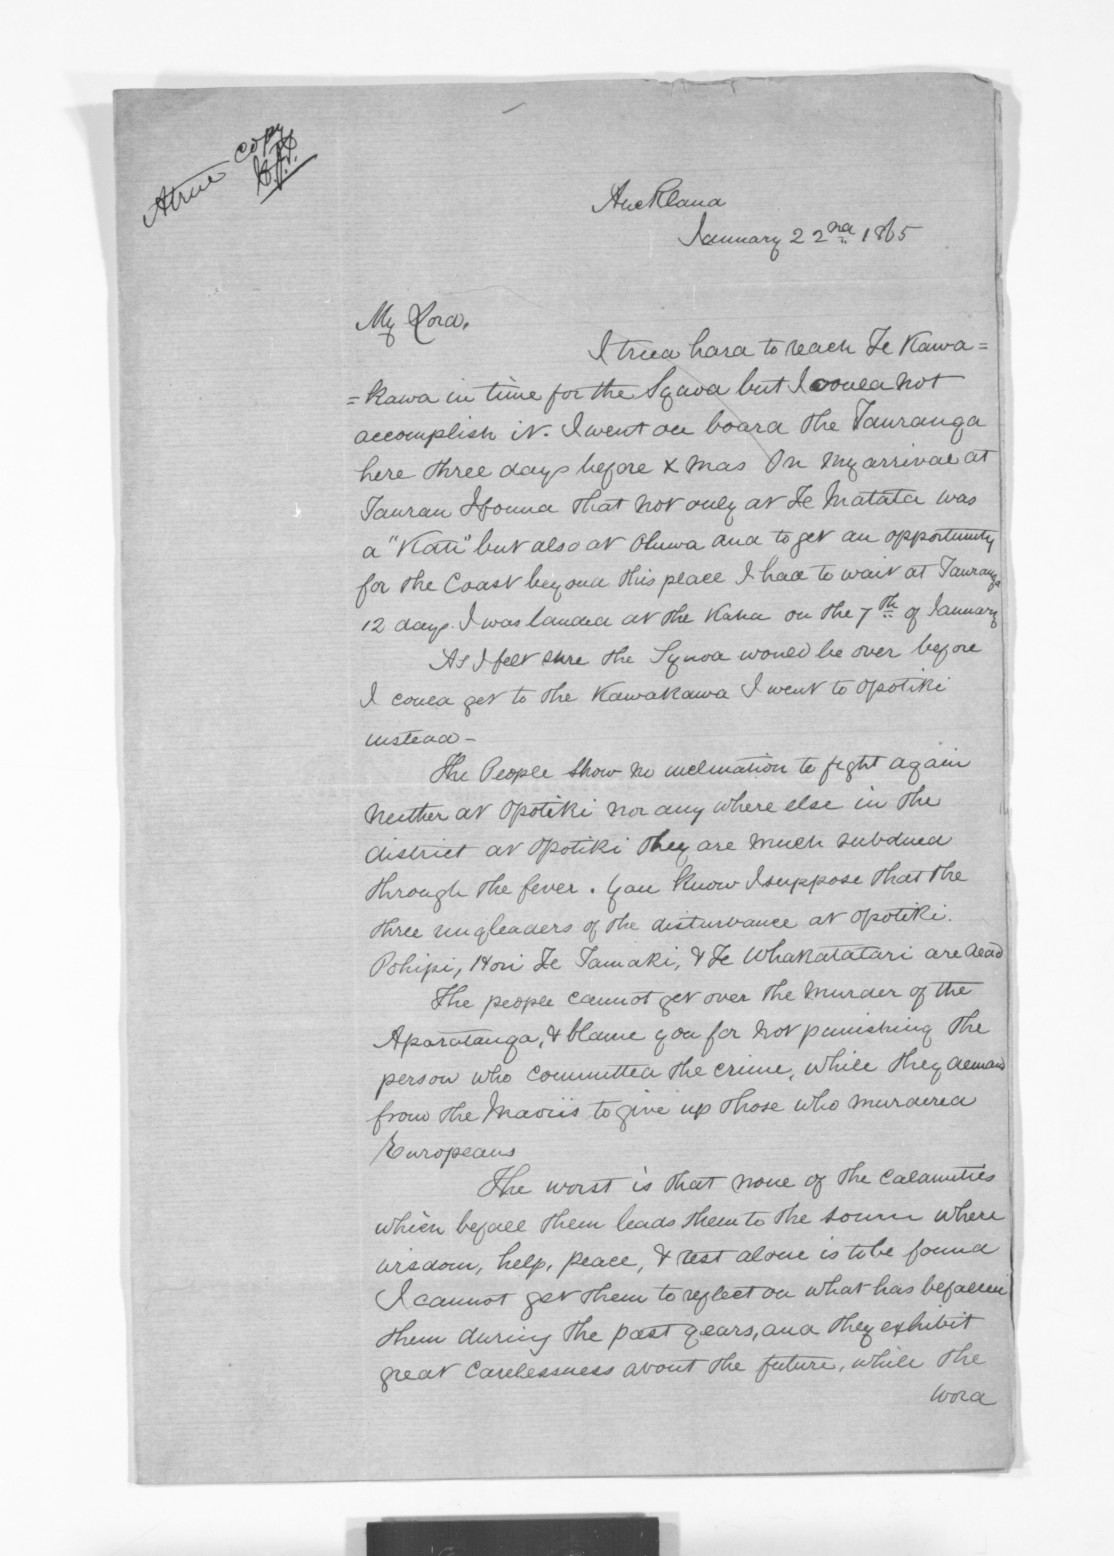 A true copy
Auckland
January 22nd 1865
My Lord,
I tried hard to reach Te Kawa=
=kawa in time for the Synod but I could not
accomplish it. I went on board the Tauranga
here three days before Xmas On my arrival at
Tauran I found that not only at Te Matata was
a "Kati" but also at Ohiwa and to get an opportunity
for the Coast beyond this place I had to wait at Tauranga
12 days. I was landed at the Kaha on the 7th of January
As I felt sure the Synod would be over before
I could get to the Kawakawa I went to Opotiki
instead –
The People show no inclination to fight again
neither at Opotiki nor any where else in the
district at Opotiki they are much subdued
through the fever. You know I suppose that the
three ringleaders of the disturbance at Opotiki.
Pohipi, Hori Te Tamaki, & Te Whakatatari are dead
The people cannot get over the murder of the
Aparatanga, & blame you for not punishing the
person who committed the crime, while they demand
from the Maoris to give up those who murdered
Europeans
The worst is that none of the calamities
which befall them leads them to the source where
wisdom, help, peace, & rest alone is to be found
I cannot get them to reflect on what has befallen
them during the past years, and they exhibit
great carelessness about the future, while the
word